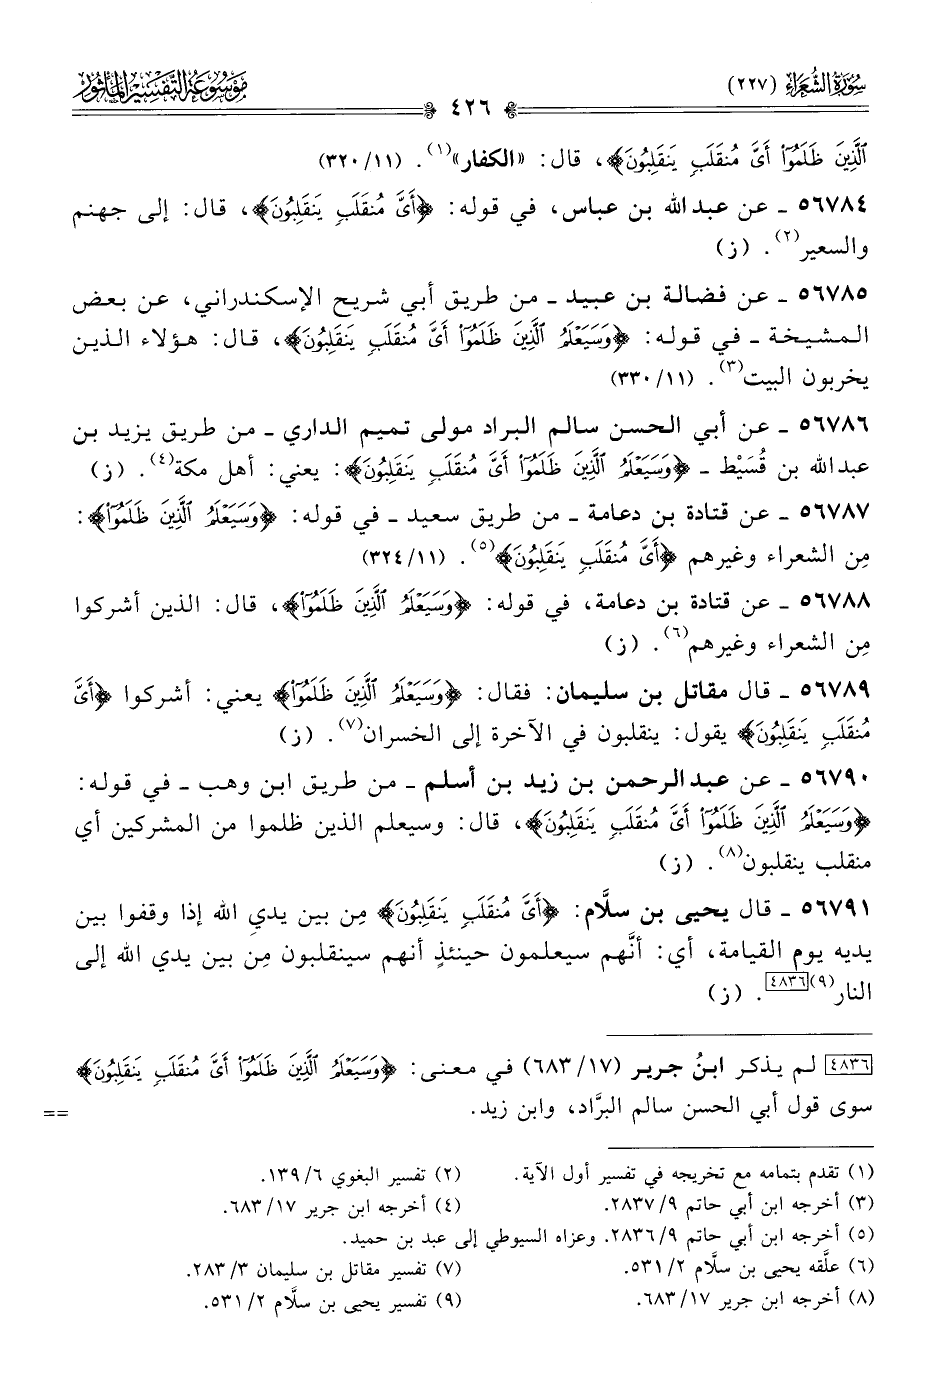 سُورَةُ الشُّعَرَاءِ (٢٢٧)
٤٢٦
مَوْسُوعَةُ التَّفْسِيرِ المَأْثُورِ
ٱلَّذِينَ ظَلَمُوٓا۟ أَىَّ مُنقَلَبٍ يَنقَلِبُونَ﴾، قال: «الكفار»(١). (١١/ ٣٢٠)
٥٦٧٨٤ ـ عن عبد الله بن عباس، في قوله: ﴿أَىَّ مُنقَلَبٍ يَنقَلِبُونَ﴾، قال: إلى جهنم
والسعير(٢). (ز)
٥٦٧٨٥ ـ عن فضالة بن عبيد ـ من طريق أبي شريح الإسكندراني، عن بعض
المشيخة ـ في قوله: ﴿وَسَيَعْلَمُ ٱلَّذِينَ ظَلَمُوٓا۟ أَىَّ مُنقَلَبٍ يَنقَلِبُونَ﴾، قال: هؤلاء الذين
يخربون البيت(٣). (١١/ ٣٣٠)
٥٦٧٨٦ ـ عن أبي الحسن سالم البراد مولى تميم الداري ـ من طريق يزيد بن
عبد الله بن قُسَيْط ـ ﴿وَسَيَعْلَمُ ٱلَّذِينَ ظَلَمُوٓا۟ أَىَّ مُنقَلَبٍ يَنقَلِبُونَ﴾: يعني: أهل مكة(٤). (ز)
٥٦٧٨٧ ـ عن قتادة بن دعامة ـ من طريق سعيد ـ في قوله: ﴿وَسَيَعْلَمُ ٱلَّذِينَ ظَلَمُوٓا۟﴾:
مِن الشعراء وغيرهم ﴿أَىَّ مُنقَلَبٍ يَنقَلِبُونَ﴾(٥). (١١/ ٣٢٤)
٥٦٧٨٨ ـ عن قتادة بن دعامة، في قوله: ﴿وَسَيَعْلَمُ ٱلَّذِينَ ظَلَمُوٓا۟﴾، قال: الذين أشركوا
مِن الشعراء وغيرهم(٦). (ز)
٥٦٧٨٩ ـ قال مقاتل بن سليمان: فقال: ﴿وَسَيَعْلَمُ ٱلَّذِينَ ظَلَمُوٓا۟﴾ يعني: أشركوا ﴿أَىَّ
مُنقَلَبٍ يَنقَلِبُونَ﴾ يقول: ينقلبون في الآخرة إلى الخسران(٧). (ز)
٥٦٧٩٠ ـ عن عبد الرحمن بن زيد بن أسلم ـ من طريق ابن وهب ـ في قوله:
﴿وَسَيَعْلَمُ ٱلَّذِينَ ظَلَمُوٓا۟ أَىَّ مُنقَلَبٍ يَنقَلِبُونَ﴾، قال: وسيعلم الذين ظلموا من المشركين أي
منقلب ينقلبون(٨). (ز)
٥٦٧٩١ ـ قال يحيى بن سلَّام: ﴿أَىَّ مُنقَلَبٍ يَنقَلِبُونَ﴾ مِن بين يديِ الله إذا وقفوا بين
يديه يوم القيامة، أي: أنَّهم سيعلمون حينئذٍ أنهم سينقلبون مِن بين يدي الله إلى
النار(٩)[٤٨٣٦]. (ز)
[٤٨٣٦] لم يذكر ابنُ جرير (١٧/ ٦٨٣) في معنى: ﴿وَسَيَعْلَمُ ٱلَّذِينَ ظَلَمُوٓا۟ أَىَّ مُنقَلَبٍ يَنقَلِبُونَ﴾
سوى قول أبي الحسن سالم البرَّاد، وابن زيد. ==
(١) تقدم بتمامه مع تخريجه في تفسير أول الآية. (٢) تفسير البغوي ٦/ ١٣٩.
(٣) أخرجه ابن أبي حاتم ٩/ ٢٨٣٧. (٤) أخرجه ابن جرير ١٧/ ٦٨٣.
(٥) أخرجه ابن أبي حاتم ٩/ ٢٨٣٦. وعزاه السيوطي إلى عبد بن حميد.
(٦) علَّقه يحيى بن سلَّام ٢/ ٥٣١. (٧) تفسير مقاتل بن سليمان ٣/ ٢٨٣.
(٨) أخرجه ابن جرير ١٧/ ٦٨٣. (٩) تفسير يحيى بن سلَّام ٢/ ٥٣١.